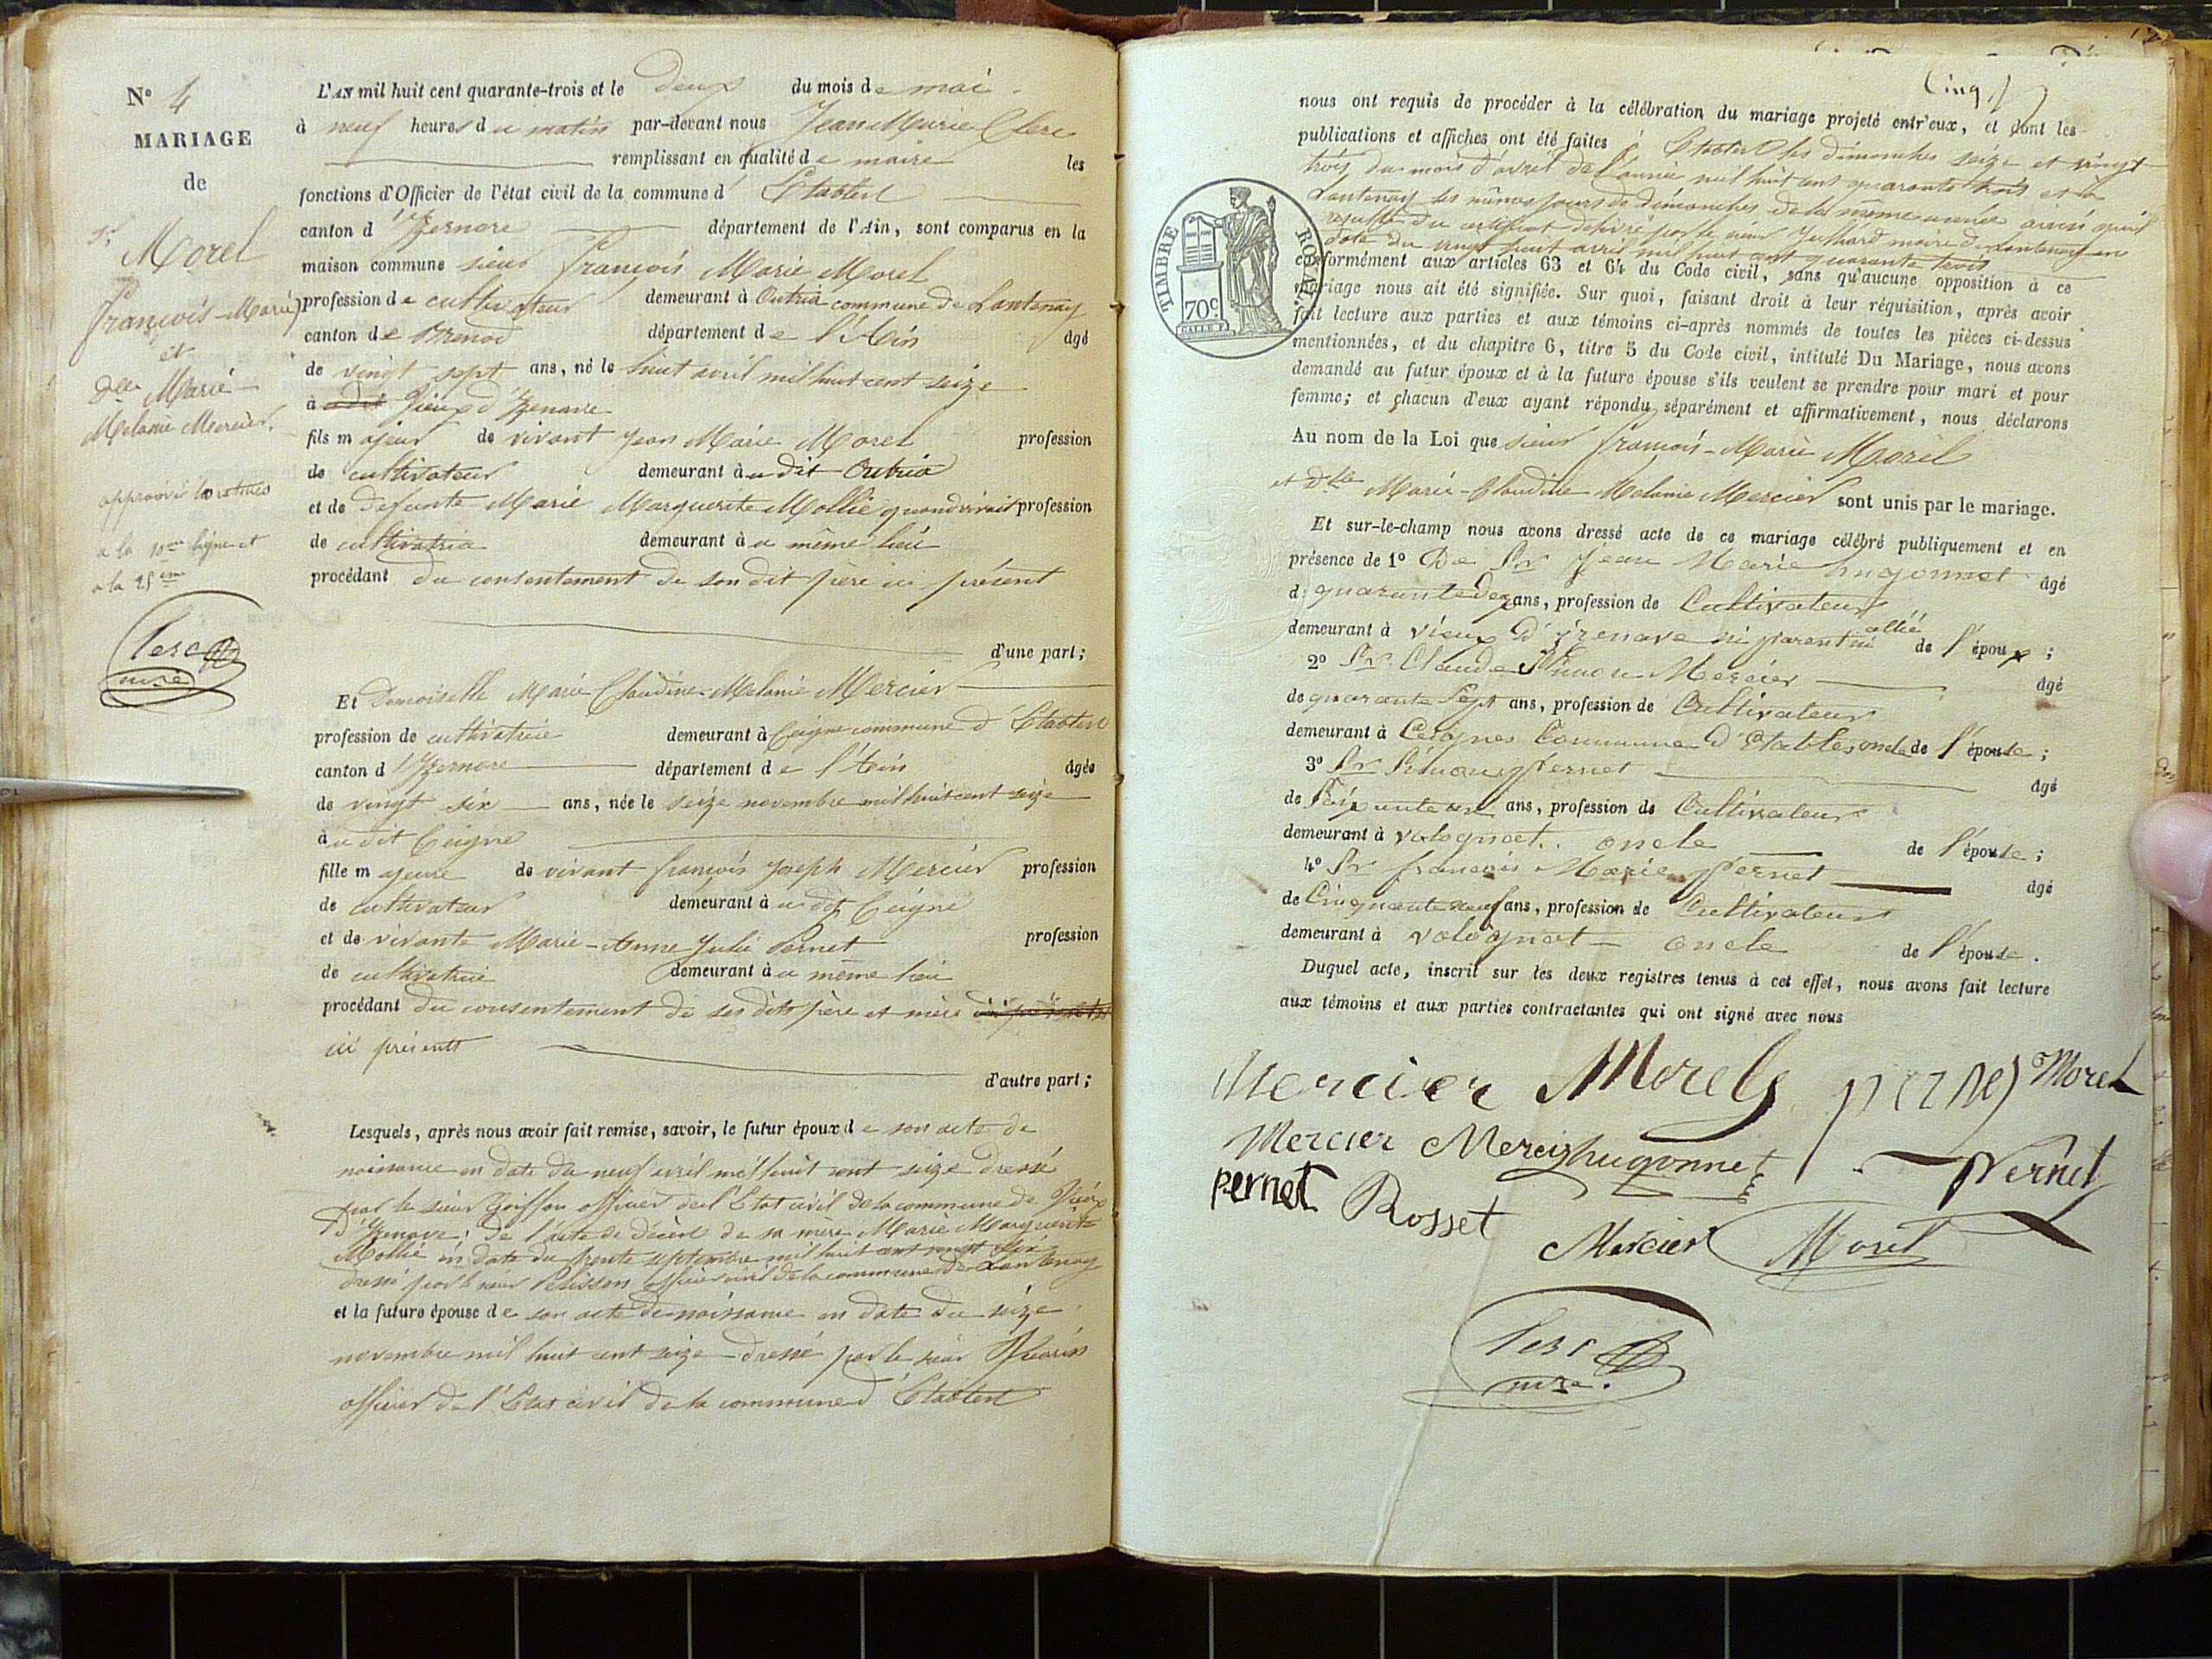 N° 4
MARIAGE
de
Sr Morel
françois-Marie
et
Dlle Marie
Melanie Mercier.
approuvé
a la 10me ligne et
a la 25me
Clerc
mre
L'AN mil huit cent quarante-trois et le deux du mois de mai
à neuf heures du matin par-devant nous Jean Marie Clerc
remplissant en qualité de maire les
fonctions d'Officier de l'état civil de la commune d' Etables
canton d'Izernore département de l'Ain, sont comparus en la
maison commune sieur françois Marie Morel
profession de cultivateur demeurant à Outria commune de Lantenay
canton de Brenod département de l'Ain âgé
de vingt sept ans, né le huit avril mil huit cent seize
à Vieux d'Izenave
fils majeur de vivant Jean Marie Morel profession
de cultivateur demeurant à u dit Outria
et de defunte Marie Marguerite Mollie quand vivait profession
de cultivatrice demeurant à u même lieu
procédant du consentement de son dit père ici présent
d'une part;
Et Demoiselle Marie Claudine Melanie Mercier
profession de cultivatrice demeurant à Ceigne commune d'Etables
canton d'Izernore département de l'Ain âgée
de vingt six ans, née le seize novembre mil huit cent seize
à u dit Ceigne
fille majeure de vivant françois Joseph Mercier profession
de cultivateur demeurant à u dit Ceigne
et de vivante Marie-Anne Julie Pernet profession
de cultivatrice demeurant à u même lieu
procédant du consentement de ses dits père et mère
ici présents
d'autre part;
Lesquels, après nous avoir fait remise, savoir, le futur époux de son acte de
naissance en date du neuf avril mil huit cent seize dressé
par le sieur Goiffon officier de l'Etat civil de la commune de Vieux
d'Izenave; de l'acte de décès de sa mère Marie Marguerite
Mollie en date du trente septembre mil huit cent vingt six
dressé par le sieur Pelisson officier civil de la commune de Lantenay
et la future épouse de son acte de naissance en date du seize
novembre mil huit cent seize dressé par le sieur
officier de l'Etat civil de la commune d'Etables
Cinq
nous ont requis de procéder à la célébration du mariage projeté entr'eux, et dont les
publications et affiches ont été faites à Etables les dimanches seize et vingt
trois du mois d'avril de l'année mil huit cent quarante trois et à
Lantenay les mêmes jours de dimanches de la même année ainsi qu'il
résulte du certificat délivré par le sieur Juihard maire de Lantenay en
date du vingt huit avril mil huit cent quarante trois
conformément aux articles 63 et 64 du Code civil, sans qu'aucune opposition à ce
mariage nous ait été signifiée. Sur quoi, faisant droit à leur réquisition, après avoir
fait lecture aux parties et aux témoins ci-après nommés de toutes les pièces ci-dessus
mentionnées, et du chapitre 6, titre 5 du Code civil, intitulé Du Mariage, nous avons
demandé au futur époux et à la future épouse s'ils veulent se prendre pour mari et pour
femme; et chacun d'eux ayant répondu séparément et affirmativement, nous déclarons
Au nom de la Loi que sieur françois-Marie Morel
et Dlle Marie-Claudine Melanie Mercier sont unis par le mariage.
Et sur-le-champ nous avons dressé acte de ce mariage célébré publiquement et en
présence de 1° De Sr Jean Marie hugonnet âgé
d quarante ans, profession de Cultivateur
demeurant à vieux d'izenave ni parent ni allié de l'époux;
2° Sr Claude Simon Mercier âgé
de quarante sept ans, profession de Cultivateur
demeurant à Ceignes Commune d'Etables oncle de l'épouse;
3° Sr Simon Pernet âgé
de Soixante ans, profession de Cultivateur
demeurant à volognat. oncle de l'épouse;
4° Sr françois Marie Pernet âgé
de Cinquante neuf ans, profession de Cultivateur
demeurant à volognat oncle de l'épouse.
Duquel acte, inscrit sur les deux registres tenus à cet effet, nous avons fait lecture
aux témoins et aux parties contractantes qui ont signé avec nous
Mercier Morel pernet Morel
Mercier Mercier hugonnet Pernet
pernet Rosset
Mercier Morel
Clerc
mre.
TIMBRE ROYAL.
70c